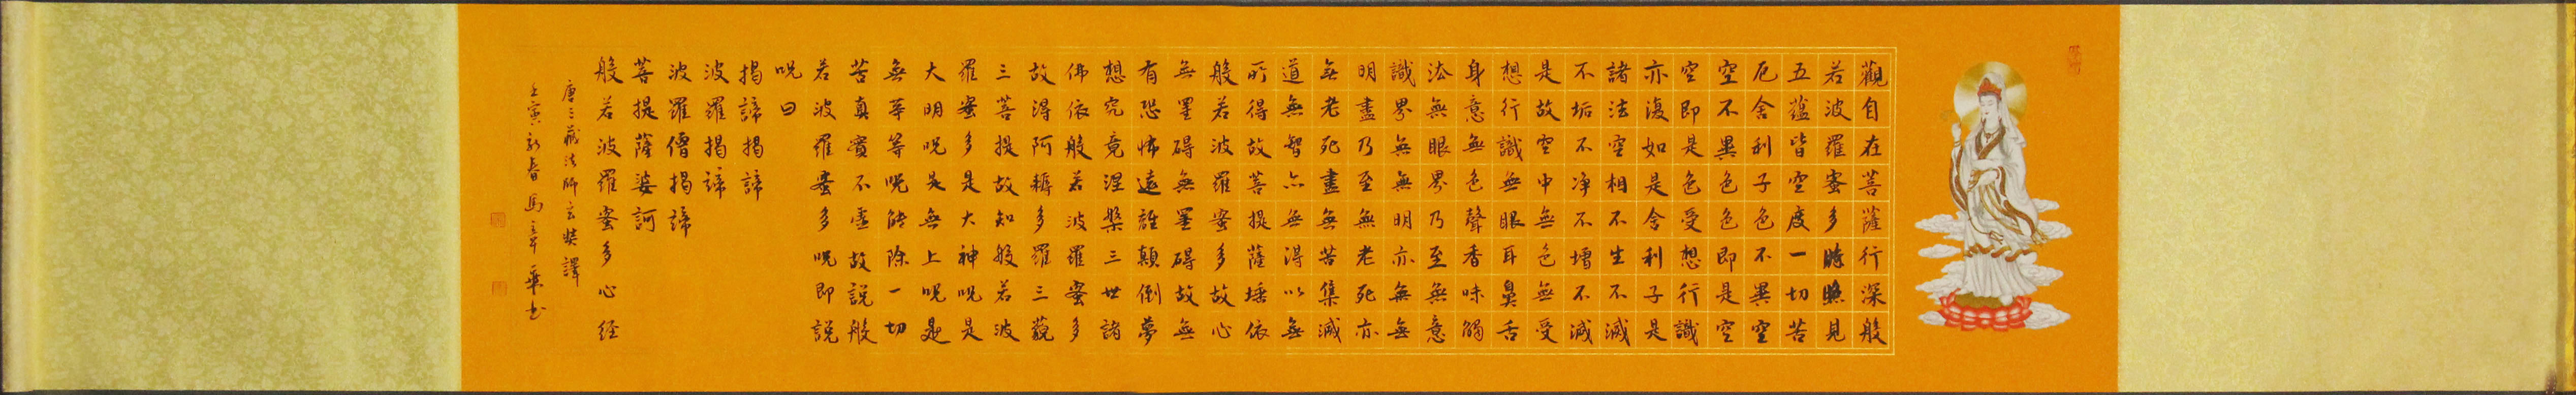 觀自在菩薩行深般
若波羅蜜多時照見
五蘊皆空度一切苦
厄舍利子色不異空
空不異色色即是空
空即是色受想行識
亦復如是舍利子是
諸法空相不生不滅
不垢不淨不增不減
是故空中無色無受
想行識無眼耳鼻舌
身意無色聲香味觸
法無眼界乃至無意
識界無無明亦無無
明盡乃至無老死亦
無老死盡無苦集滅
道無智亦無得以無
所得故菩提薩埵依
般若波羅蜜多故心
無罣礙無罣礙故無
有恐怖遠離顛倒夢
想究竟涅槃三世諸
佛依般若波羅蜜多
故得阿耨多羅三藐
三菩提故知般若波
羅蜜多是大神咒是
大明咒是無上咒是
無等等咒能除一切
苦真實不虛故說般
若波羅蜜多咒即說
咒曰
揭諦揭諦
波羅揭諦
波羅僧揭諦
菩提薩婆訶
般若波羅蜜多心経
唐三藏法師玄奘譯
壬寅新春馬章華書